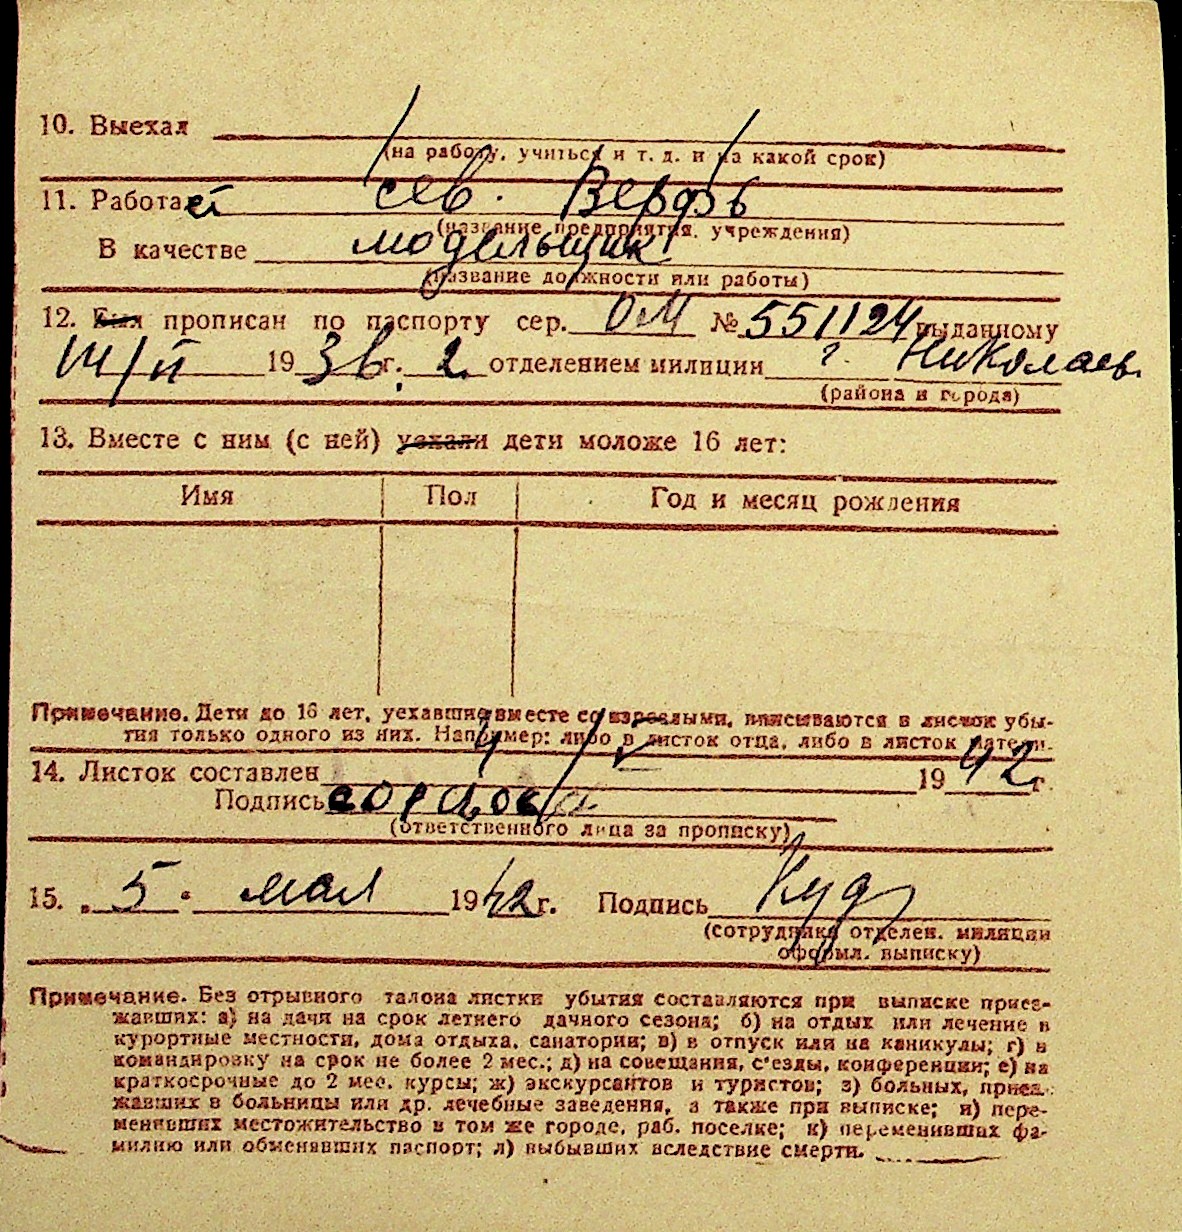 10. Выехал
(на работу, учиться и т. д. и на какой срок)
11. Работает сев. Верфь
(название предприятия, учреждения)
В качестве модельщик
(название должности или работы)
12. Был прописан по паспорту сер. ОМ № 551124 выданному
14/II 1936 г. 2 отделением милиции г. Николаев
(района и города)
13. Вместе с ним (с ней) уехали дети моложе 16 лет:
Имя Пол Год и месяц рождения
Примечание. Дети до 16 лет, уехавшие вместе со взрослыми, вписываются в листок убы-
тия только одного из них. Например: либо в листок отца, либо в листок матери.
14. Листок составлен 4/V 1942 г.
Подпись
(ответственного лица за прописку)
15. „5" мая 1942 г. Подпись Куд
(сотрудника отделен. милиции
оформл. выписку)
Примечание. Без отрывного талона листки убытия составляются при выписке приез-
жавших: а) на дачи на срок летнего дачного сезона; б) на отдых или лечение в
курортные местности, дома отдыха, санатории; в) в отпуск или на каникулы; г) в
командировку на срок не более 2 мес.; д) на совещания, с'езды, конференции; е) на
краткосрочные до 2 мес. курсы; ж) экскурсантов и туристов; з) больных, приез-
жавших в больницы или др. лечебные заведения, а также при выписке; и) пере-
менивших местожительство в том же городе, раб. поселке; к) переменивших фа-
милию или обменявших паспорт; л) выбывших вследствие смерти.